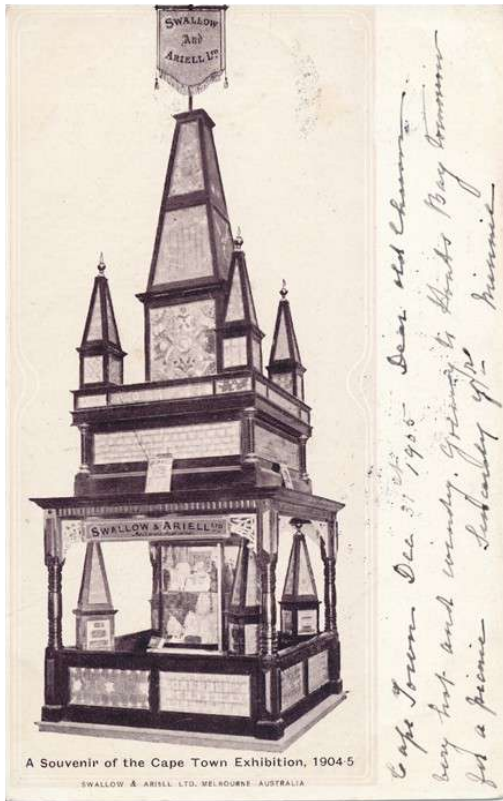 SWALLOW
And
ARIELL LTD
SWALLOW & ARIELL LTD
A Souvenir of the Cape Town Exhibition, 1904-5
SWALLOW & ARIELL LTD. MELBOURNE AUSTRALIA
Cape Town Dec 31st 1905 Dear old Chum
very hot and windy. Going to Houts Bay tomorrow
for a picnic Sincerely yrs Minnie